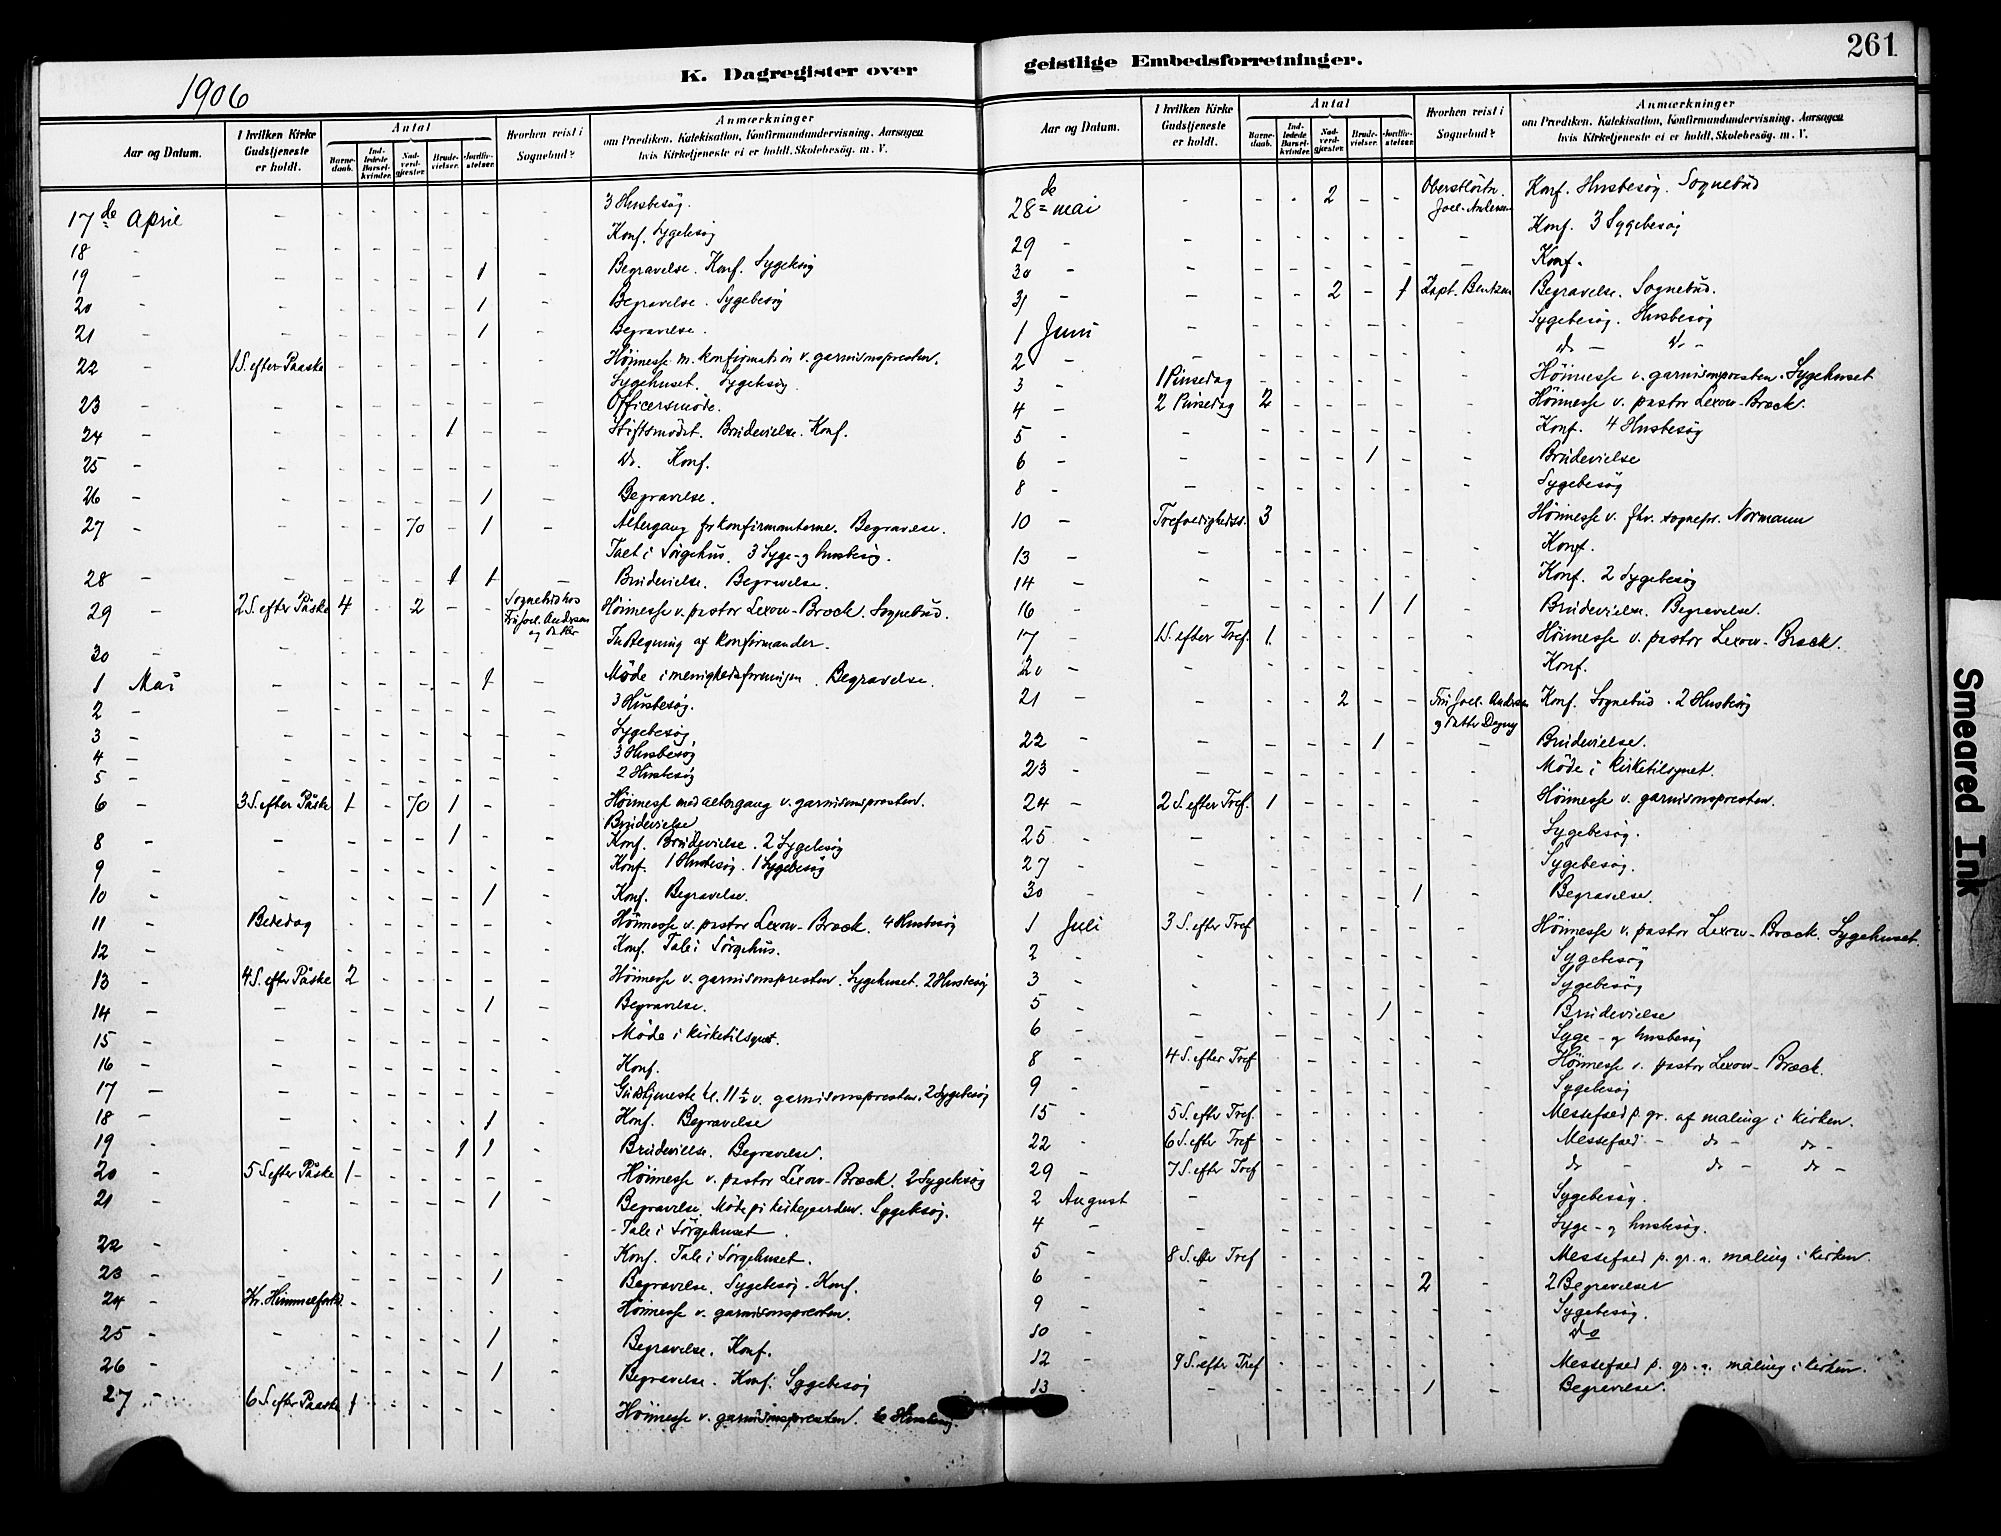 K. Dagregister over geistlige Embedsforretninger.
261
1906
Aar og Datum.
I hvilken Kirke Gudstjeneste er holdt.
Antal
Barnedaab.
Indledede Barselkvinder.
Nadverdgjæster.
Brudevielser.
Jordfæstelser.
Hvorhen reist i Sognebud?
Anmærkninger
om Prædiken, Katekisation, Konfirmandundervisning. Aarsagen
hvis Kirketjeneste ei er holdt. Skolebesög. m. V.
17de April - - - - - - - 3 Husbesøg.
18 - - - - - - - - Konf. Sygebesøg
19 - - - - - - 1 - Begravelse. Konf. Sygebesøg
20 - - - - - - 1 - Begravelse. Sygebesøg
21 - - - - - - 1 - Begravelse.
22 - 1 S. efter Paaske - - - - - - Høimesse m. konfirmation v. garnisonspresten.
Sygehuset. Sygebesøg
23 - - - - - - - - Officersmøde.
24 - - - - - 1 - - Stiftsmødet. Brudevielse. Konf.
25 - - - - - - - - Do. Konf.
26 - - - - - - 1 - Begravelse.
27 - - - - 70 - 1 - Altergang for konfirmanterne. Begravelse.
Tale i Sørgehus. 3 Syge- og husbesøg.
28 - - - - - 1 1 - Brudevielse. Begravelse.
29 - 2 S. efter Påske 4 - 2 - - Sognebud hos Fru Joel. Andersen og datter Høimesse v. pastor Lexow-Brock. Sognebud.
30 - - - - - - - - Indtegning af konfirmander.
1 Mai - - - - - 1 - Møde i menighedsforeningen. Begravelse.
2 - - - - - - - - 3 Husbesøg.
3 - - - - - - - - Sygebesøg
4 - - - - - - - - 3 Husbesøg
5 - - - - - - - - 2 Husbesøg
6 - 3 S. efter Påske 1 - 70 1 - - Høimesse med altergang v. garnisonspresten.
Brudevielse
8 - - - - - 1 - - Konf. Brudevielse. 2 Sygebesøg
9 - - - - - - - - Konf. 1 Husbesøg. 1 Sygebesøg
10 - - - - - - 1 - Konf. Begravelse.
11 - Bededag - - - - - - Høimesse v. pastor Lexow-Brock. 4 Husbesøg
12 - - - - - - - - Konf. Tale i Sørgehus.
13 - 4 S. efter Påske 2 - - - - - Høimesse v. garnisonspresten. Sygehuset. 2 Husbesøg
14 - - - - - - 1 - Begravelse.
15 - - - - - - - - Møde i kirketilsynet.
16 - - - - - - - - Konf.
17 - - - - - - - - Gudstjeneste kl. 11 1/2 v. garnisonspresten. 2 Sygebesøg
18 - - - - - - 1 - Konf. Begravelse
19 - - - - - 1 1 - Brudevielse. Begravelse.
20 - 5 S. efter Påske 1 - - - - - Høimesse v. pastor Lexow-Brock. 2 Sygebesøg
21 - - - - - - 1 - Begravelse. Møde på kirkegaarden. Sygebesøg.
- Tale i Sørgehuset.
22 - - - - - - - - Konf. Tale i Sørgehuset.
23 - - - - - - 1 - Begravelse. Sygebesøg. Konf.
24 - Kr. Himmelfartsd. - - - - - - Høimesse v. garnisonspresten.
25 - - - - - - 1 - Begravelse. Konf.
26 - - - - - - 1 - Begravelse. Konf. Sygebesøg
27 - 6 S. efter Paaske 1 - - - - - Høimesse v. garnisonspresten. 6 Husbesøg.
Aar og Datum.
I hvilken Kirke Gudstjeneste er holdt.
Antal
Barnedaab.
Indledede Barselkvinder.
Nadverdgjæster.
Brudevielser.
Jordfæstelser.
Hvorhen reist i Sognebud?
Anmærkninger
om Prædiken, Katekisation, Konfirmandundervisning. Aarsagen
hvis Kirketjeneste ei er holdt. Skolebesög. m. V.
28de mai - - - 2 - - Oberstløitn. Joel. Andersen Konf. Husbesøg. Sognebud
29 - - - - - - - - Konf. 3 Sygebesøg
30 - - - - - - - - Konf.
31 - - - - 2 - 1 Kapt. Bentzen Begravelse. Sognebud.
1 Juni - - - - - - - Sygebesøg. Husbesøg
2 - - - - - - - - Do - Do -
3 - 1 Pinsedag - - - - - - Høimesse v. garnisonspresten. Sygehuset
4 - 2 Pinsedag 2 - - - - - Høimesse v. pastor Lexow-Brock.
5 - - - - - - - - Konf. 4 Husbesøg
6 - - - - - 1 - - Brudevielse
8 - - - - - - - - Sygebesøg
10 - Trefoldighedss. 3 - - - - - Høimesse v. fhv. sognepr. Normann
13 - - - - - - - - Konf.
14 - - - - - - - - Konf. 2 Sygebesøg
16 - - - - - 1 1 - Brudevielse. Begravelse.
17 - 1 S. efter Tref. 1 - - - - - Høimesse v. pastor Lexow-Brock.
20 - - - - - - - - Konf.
21 - - - - 2 - - Fru Joel. Andersen og datter Dagny Konf. Sognebud. 2 Husbesøg
22 - - - - - 1 - - Brudevielse.
23 - - - - - - - - Møde i kirketilsynet.
24 - 2 S. efter Tref. 1 - - - - - Høimesse v. garnisonspresten.
25 - - - - - - - - Sygebesøg.
27 - - - - - - - - Sygebesøg.
30 - - - - - - 1 - Begravelse.
1 Juli 3 S. efter Tref - - - - - - Høimesse v. pastor Lexow-Brock. Sygehuset.
2 - - - - - - - - Sygebesøg
3 - - - - - - - - Sygebesøg
5 - - - - - 1 - - Brudevielse
6 - - - - - - - - Syge- og husbesøg
8 - 4 S. efter Tref - - - - - - Høimesse v. pastor Lexow-Brock.
9 - - - - - - - - Sygebesøg
15 - 5 S. efter Tref. - - - - - - Messefald p. gr. af maling i kirken.
22 - 6 S. efter Tref - - - - - - Messefald - do - do -
29 - 7 S. efter Tref - - - - - - do - do - do -
2 August - - - - - - - Sygebesøg.
4 - - - - - - - - Syge- og husbesøg.
5 - 8 S. efter Tref - - - - - - Messefald p. gr. a. maling i kirken.
6 - - - - - - 2 - 2 Begravelser
9 - - - - - - - - Sygebesøg.
10 - - - - - - - - Do
12 - 9 S. efter Tref - - - - - - Messefald p. gr. a. maling i kirken.
13 - - - - - - 1 - Begravelse.
Smeared Ink